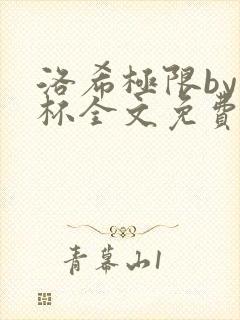 洛希極限by
杯全文免費
青幕山1